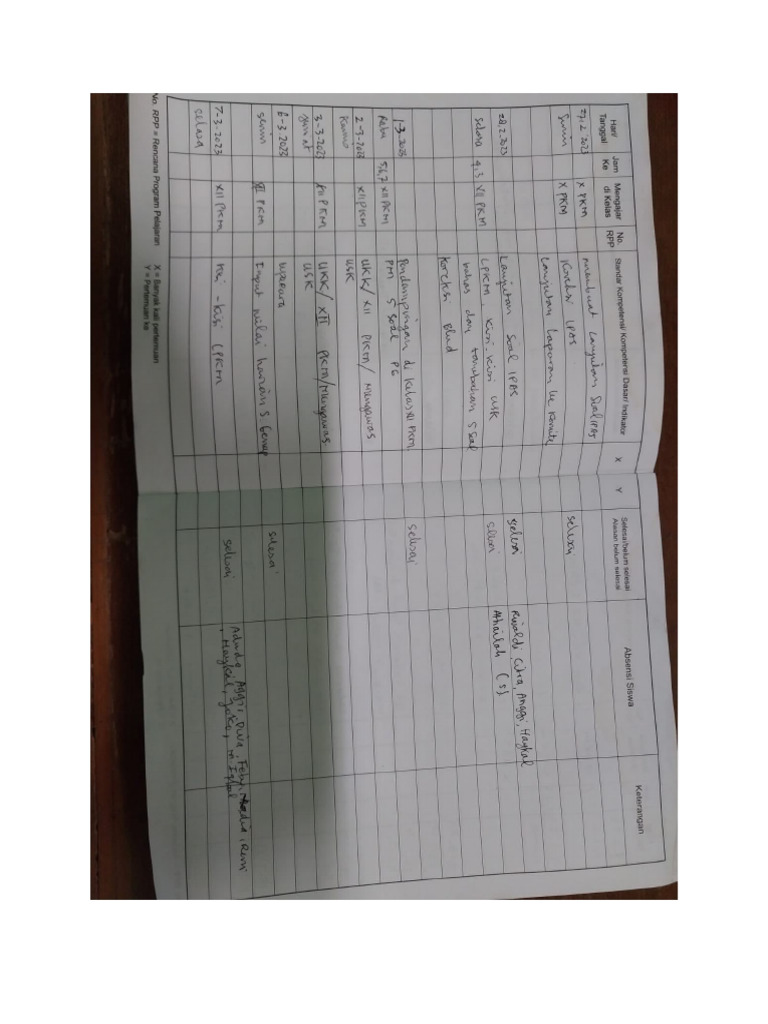 Hari/ Tanggal
Jam Ke
Mengajar di Kelas
No. RPP
Standar Kompetensi/ Kompetensi Dasar/ Indikator
X
Y
Selesai/belum selesai
Alasan belum selesai
Absensi Siswa
Keterangan
27.2.2023 X PKM membuat lanjutan Soal IPAS
Senin X PKM Koreksi IPAS selesai
lanjutan Laporan ke Komite
28.2.2023 Lanjutan Soal IPAS selesai Rivaldi, Citra, Anggi, Haykal
Selasa 4.3 XII PKM LPKM Kisi-Kisi USK Athailah (S)
bahas dan tambahan 5 soal
Koreksi Blud
1-3.2023 Pendampingan di Kelas XI PKM selesai
Rabu 5,6,7 XII PKM PM 5 soal PG
2-3-2023 XII PKM UKK/ XII PKM/ Mengawas
Kamis USK
3-3-2023 XII PKM UKK/ XII PKM/Mengawas
Jum'at USK
6-3.2023 upacara selesai
Senin XII PKM Input nilai harian S. Genap
7-3-2023 XII PKM Kisi-kisi LPKM selesai
Selasa
No. RPP = Rencana Program Pelajaran
X = Banyak kali pertemuan
Y = Pertemuan ke